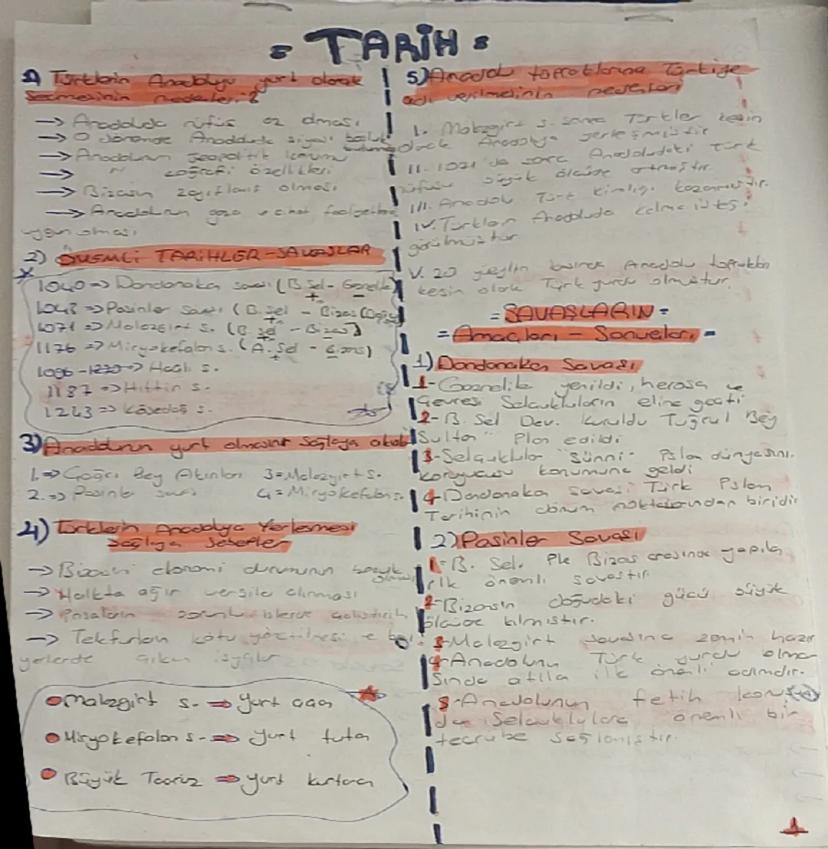 = TARİH =
1) Türklerin Anadoluyu yurt olarak
seçmesinin nedenleri?
→ Anadoluda nüfus az olması
→ O dönemde Anadoluda siyasi
→ Anadolunun jeopolitik konumu
→ " coğrafi özellikleri
→ Bizasın zayıflamış olması
→ Anadolunun gaza ve cihat
uygun olması
2) ÖNEMLİ TARİHLER-SAVAŞLAR
1040 => Dandanakan savaşı (B. Sel - Gazneli)
1048 => Pasinler savaşı (B. Sel - Bizas
1071 => Malazgirt s. (B. Sel - Bizas)
1176 => Miryokefalon s. (A. Sel - Bizans)
1096 - 1270 => Haçlı s.
1187 => Hittin s.
1243 => Kösedağ s.
3) Anadolunun yurt olmasını sağlaya
1. => Çağrı Bey Akınları 3 = Malazgirt s.
2. => Pasinler savaşı 4 = Miryokefalon s.
4) Türklerin Anadoluya Yerleşmesi
sağlaya sebepler
→ Bizasın ekonomi durumunun
→ Halkta ağır vergile alınması
→ İnsaların zorunlu işlerde
→ Tekfurların kötü yönetilmesi
yerlerde çıkan isyanlar
• Malazgirt s. => yurt açan
• Miryokefalon s. => yurt tutan
• Büyük Taaruz => yurt kurtaran
5) Anadolu topraklarına Türkiye
adı verilmesinin nedenleri
I. Malazgirt s. sonra Türkler kesin
olarak Anadoluya yerleşmiştir
II. 1071 'da sora Anadoludaki Türk
nüfusu büyük ölçüde artmıştır.
III. Anadolu Türk kimliği kazanmıştır.
IV. Türklerin Anadoluda kalma isteği
görülmüştür
V. 20 yüzyılın başında Anadolu toprakları
kesin olarak Türk yurdu olmuştur.
= SAVAŞLARIN =
= Amaçları - Sonuçları =
1) Dandanakan Savaşı
1- Gazneliler yenildi, horasa ve
çevresi Selcukluların eline geçti
2- B. Sel Dev. kuruldu Tuğrul Bey
"Sultan" ilan edildi
3- Selçuklular "Sünni" İslam dünyasını
koruyucu konumuna geldi
4- Dandanakan savaşı Türk İslam
Tarihinin dönüm noktalarından biridir
2) Pasinler Savaşı
1- B. Sel. ile Bizas arasında yapıla
ilk önemli savaştır
2- Bizasın doğudaki gücü büyük
ölçüde kılmıştır.
3- Malazgirt savaşına zemin hazır
4- Anadolunu Türk yurdu olma
sında atıla ilk önemli adımdır.
5- Anadolunun fetih
da Selcuklulara önemli bir
tecrübe sağlamıştır.
1